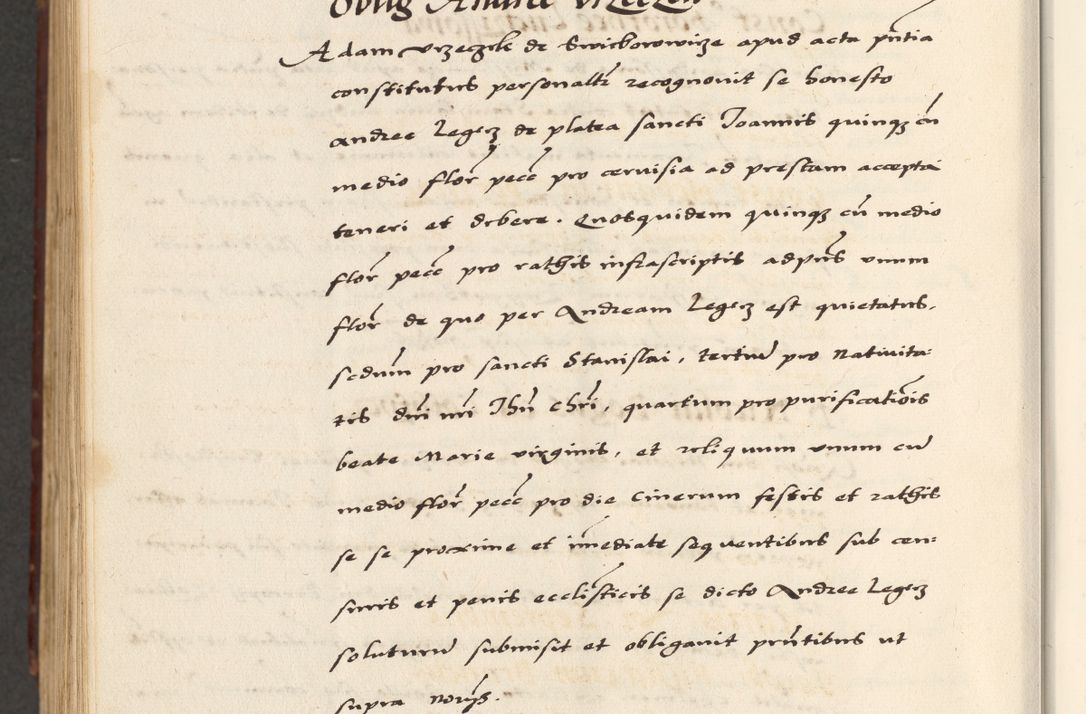 Oblig Andree Vrzeczny
Adam vrzeczk de Swieborowicze apud acta pñtia
constitutus personaltr recognovit se honesto
andree Legez de platea sancti Joannis quinqz cũ
medio flor pecc pro cervisia ad prestam accepta
teneri et debere. Quosquidem quinqz cũ medio
flor pecc pro rathis infrascriptis adpñs unum
flor de quo per Andream Legez est quietatus,
secdum pro sancti Stanislai, tertiũ pro Nativita:
tis dñi nri Jhũ Chri, quartum pro purificatiõis
beate Marie virginis, et reliquum unum cũ
medio flor pecc pro die Cinerum festis et rathis
se se proxime et imediate sequentibus sub cen:
suris et penis ecclisticis se dicto Andree Legez
soluturũ submisit et obligavit prñtibus ut
supra